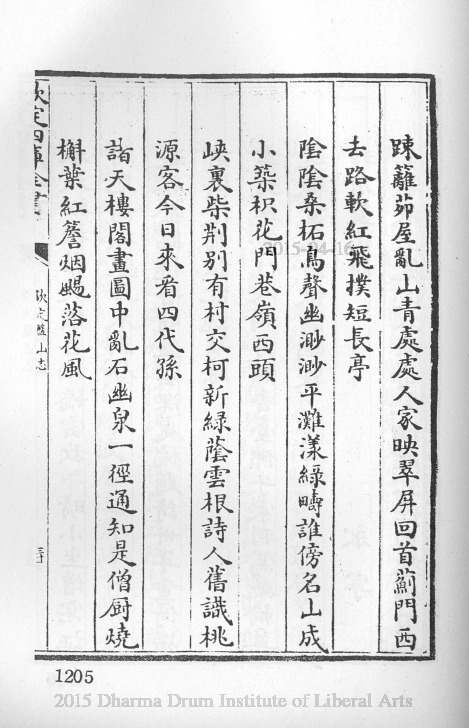 踈籬茆屋亂山青處處人家映翠屏回首薊門西
去路軟紅飛撲短長亭
陰陰桑柘鳥聲幽渺渺平灘漾綠疇誰傍名山成
小築枳花門巷嶺西頭
峽裏柴荆别有村交柯新緑蔭雲根詩人舊識桃
源客今日來看四代孫
諸天樓閣畫圖中亂石幽泉一徑通知是僧厨燒
槲葉紅簷烟颺落花風
欽定四庫全書
欽定盤山志
2015-04-16
1205
2015 Dharma Drum Institute of Liberal Arts